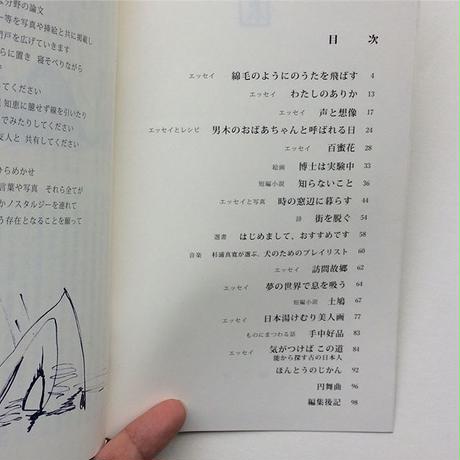 分野の論文
一等を写真や挿絵と共に掲載し
門戸を広げていきます
らに置き 寝そべりながら
てください
知恵に臆せず線を引いたり
でみたりしてください
友人と 共有してください
ひらめかせ
言葉や写真 それら全てが
かノスタルジーを連れて
う存在となることを願って
目 次
エッセイ 綿毛のようにのうたを飛ばす 4
エッセイ わたしのありか 13
エッセイ 声と想像 17
エッセイとレシピ 男木のおばあちゃんと呼ばれる日 24
エッセイ 百蜜花 28
絵画 博士は実験中 33
短編小説 知らないこと 36
エッセイと写真 時の窓辺に暮らす 44
詩 街を脱ぐ 54
選書 はじめまして、おすすめです 58
音楽 杉浦真寛が選ぶ、犬のためのプレイリスト 60
エッセイ 訪問故郷 62
エッセイ 夢の世界で息を吸う 64
短編小説 土鳩 67
エッセイ 日本湯けむり美人画 77
ものにまつわる話 手中好品 83
エッセイ 気がつけば この道 84
能から探す古の日本人
ほんとうのじかん 92
円舞曲 96
編集後記 98